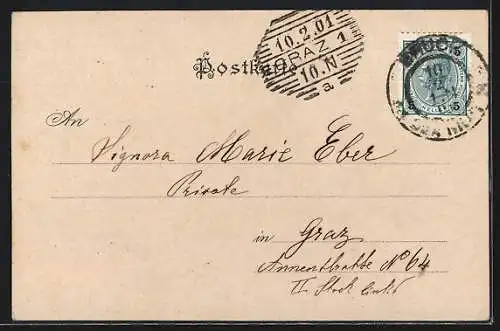 10.2.01
GRAZ 1
10.N
a
Postkarte
BRUCK
5 5
An
Signora Marie Eber
Private
in Graz
Annenstrasse No 64
II Stock